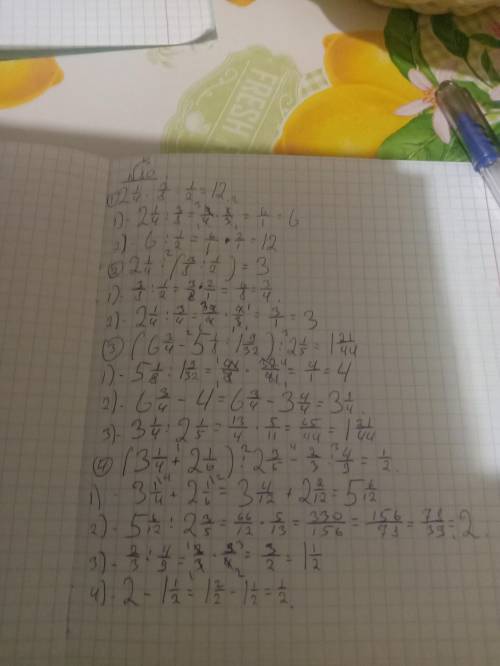 FRESH
№10
① 2 1/4 : 3/8 : 1/2 = 12
1) - 2 1/4 : 3/8 = 9/4 · 8/3 = 6/1 = 6
2) 6 : 1/2 = 6/1 · 2/1 = 12
② 2 1/4 : (3/8 : 1/2) = 3
1) - 3/8 : 1/2 = 3/8 · 2/1 = 6/8 = 3/4
2) - 2 1/4 : 3/4 = 9/4 · 4/3 = 3/1 = 3
③ (6 3/4 - 5 1/8 : 1 9/32) : 2 1/5 = 1 21/44
1) - 5 1/8 : 1 9/32 = 41/8 · 32/41 = 4/1 = 4
2) - 6 3/4 - 4 = 6 3/4 - 3 4/4 = 3 1/4
3) - 3 1/4 : 2 1/5 = 13/4 · 5/11 = 65/44 = 1 21/44
④ (3 1/4 + 2 1/6) : 2 3/5 - 2/3 : 4/9 = 1/2.
1) - 3 1/4 + 2 1/6 = 3 4/12 + 2 2/12 = 5 6/12
2) - 5 6/12 : 2 3/5 = 66/12 · 5/13 = 330/156 = 156/73 = 78/39 = 2.
3) - 2/3 : 4/9 = 2/3 · 9/4 = 3/2 = 1 1/2
4) - 2 - 1 1/2 = 1 2/2 - 1 1/2 = 1/2.